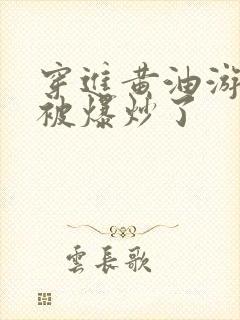 穿進黃油游
被爆炒了
雲長歌